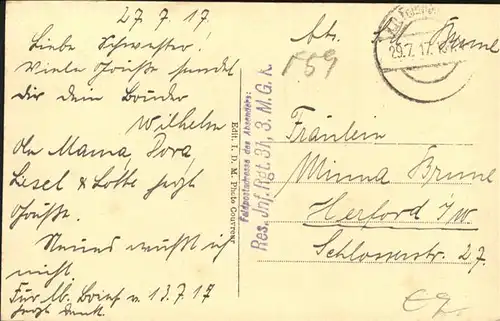 27.7.17.
Liebe Schwester!
Viele Grüße sendet
dir dein Bruder
Wilhelm
An Mama, Dora,
Liesel & Lotte
Grüße.
Neues wüßt ich
nicht.
Für lb. Brief v. 13.7.17
Dank.
Edit. I. D. M. Photo Couvreur
Feldpostadresse des Absenders:
Res. Inf. Rgt. 31, 3. M. G. K.
Abs.
Brune
29.7.17.
Fräulein
Minna Brune
Herford i/W
Schlosserstr. 27.